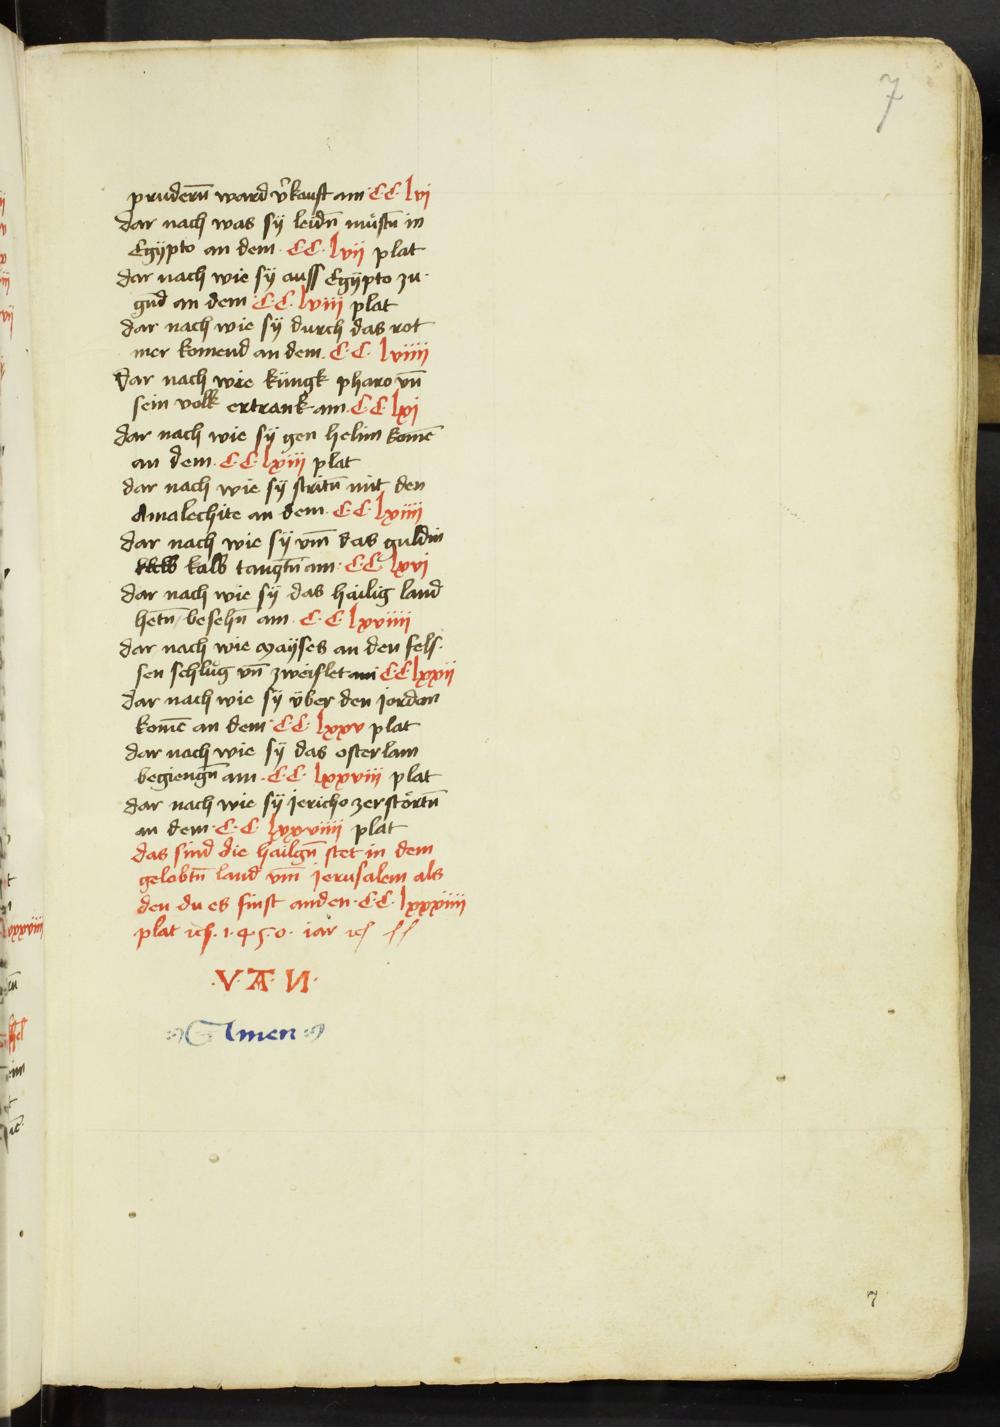 7
prudern̄ ward v̾kauft am CC lvi
dar nach was sÿ leidn̄ mustn̄ in
Egÿpto an dem · CC · lvii plat
dar nach wie sÿ auss Egÿpto zu ·
gnd̄ an dem · CC · lviii plat
dar nach wie sÿ durch das rot
mer komend an dem · CC · lviiii
Dar nach wie küngk pharo vn̄
sein volk ertrank am · CC lxi
dar nach wie sÿ gen helim kome̅
an dem · CC lxiii plat
dar nach wie sÿ stritn̄ mit den
Amalechite an dem · CC lxiiii
dar nach wie sÿ vm̄ das guldin
kalb tanqtn̄ am · CC lxvi
dar nach wie sÿ das hailig land
hetn̄ besehn̄ am · CC lxviiii
dar nach wie Mayses an den fels ·
sen schlug vn̄ zweiflet am CC lxxii
dar nach wie sÿ über den jordan
kome̅ an dem · CC · lxxv plat
dar nach wie sÿ das osterlam
begiengn̄ am · CC · lxxviii plat
dar nach wie sÿ jericho zerstörtn̄
an dem · CC · lxxviiii plat
das sind die hailgn̄ stet in dem
gelobtn̄ land vm̄ jerusalem als
den du es finst an den · CC · lxxxiiii
plat · 1 · 4 · 5 · 0 · iar
· V · A · N ·
Amen
7